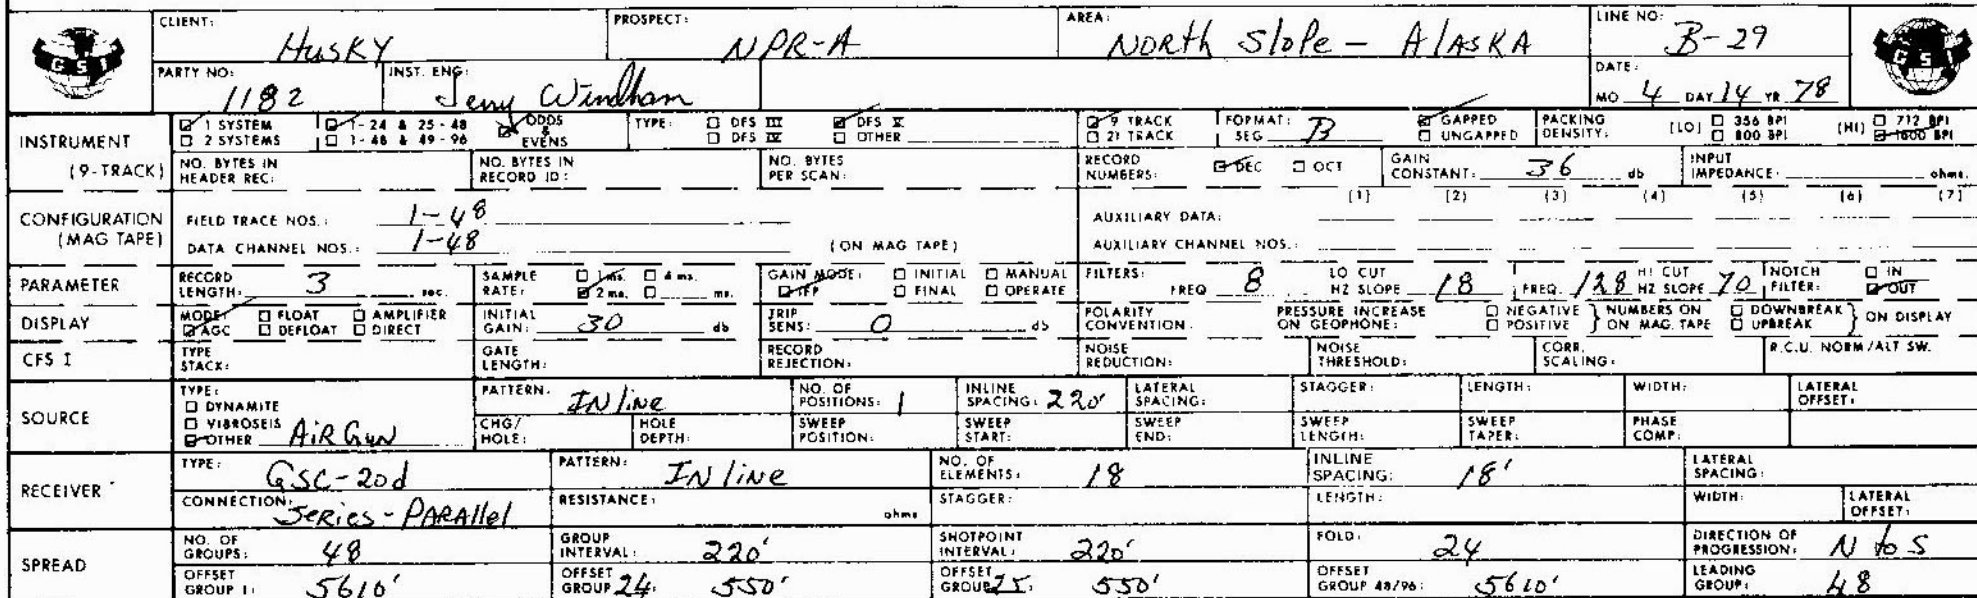 CLIENT: Husky PROSPECT: NPR-A AREA: NORth Slope - AlASKA LINE NO: B-29
GSI GSI
PARTY NO: 1182 INST. ENG: Jerry Windham DATE: MO 4 DAY 14 YR 78
INSTRUMENT (9-TRACK) 1 SYSTEM 1-24 & 25-48 ODDS & EVENS TYPE: DFS III DFS V 9 TRACK FORMAT: SEG B GAPPED PACKING DENSITY: [LO] 356 BPI (HI) 712 BPI
2 SYSTEMS 1-48 & 49-96 DFS IV OTHER 21 TRACK UNGAPPED 800 BPI 1600 BPI
NO. BYTES IN HEADER REC: NO. BYTES IN RECORD ID: NO. BYTES PER SCAN: RECORD NUMBERS: DEC OCT GAIN CONSTANT: 36 db INPUT IMPEDANCE: ohms.
CONFIGURATION (MAG TAPE) FIELD TRACE NOS.: 1-48 AUXILIARY DATA: [1] [2] (3) (4) (5) (6) (7)
DATA CHANNEL NOS.: 1-48 (ON MAG TAPE) AUXILIARY CHANNEL NOS.:
PARAMETER RECORD LENGTH: 3 sec. SAMPLE RATE: 1 ms. 4 ms. 2 ms. ms. GAIN MODE: INITIAL MANUAL IFP FINAL OPERATE FILTERS: FREQ 8 LO CUT HZ SLOPE 18 FREQ. 128 HI CUT HZ SLOPE 70 NOTCH FILTER: IN OUT
DISPLAY MODE: FLOAT AMPLIFIER AGC DEFLOAT DIRECT INITIAL GAIN: 30 db TRIP SENS: 0 db POLARITY CONVENTION: PRESSURE INCREASE ON GEOPHONE: NEGATIVE POSITIVE } NUMBERS ON MAG. TAPE DOWNBREAK UPBREAK } ON DISPLAY
CFS I TYPE STACK: GATE LENGTH: RECORD REJECTION: NOISE REDUCTION: NOISE THRESHOLD: CORR. SCALING: R.C.U. NORM/ALT SW.
SOURCE TYPE: DYNAMITE VIBROSEIS OTHER AiR Gun PATTERN: INline NO. OF POSITIONS: 1 INLINE SPACING: 220' LATERAL SPACING: STAGGER: LENGTH: WIDTH: LATERAL OFFSET:
CHG/HOLE: HOLE DEPTH: SWEEP POSITION: SWEEP START: SWEEP END: SWEEP LENGTH: SWEEP TAPER: PHASE COMP:
RECEIVER TYPE: GSC-20d PATTERN: INline NO. OF ELEMENTS: 18 INLINE SPACING: 18' LATERAL SPACING:
CONNECTION: SERies-PARAllel RESISTANCE: ohms STAGGER: LENGTH: WIDTH: LATERAL OFFSET:
SPREAD NO. OF GROUPS: 48 GROUP INTERVAL: 220' SHOTPOINT INTERVAL: 220' FOLD: 24 DIRECTION OF PROGRESSION: N to S
OFFSET GROUP 1: 5610' OFFSET GROUP 24: 550' OFFSET GROUP 25: 550' OFFSET GROUP 48/96: 5610' LEADING GROUP: 48